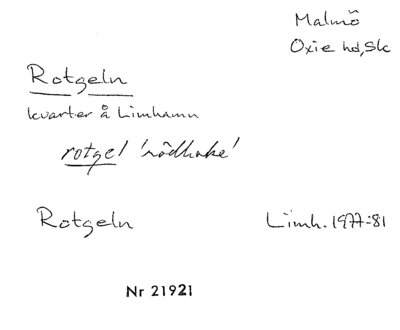 Malmö
Oxie hd, Sk
Rotgeln
kvarter å Limhamn
rotgel 'rödhake'
Rotgeln Limh. 1977:81
Nr 21921